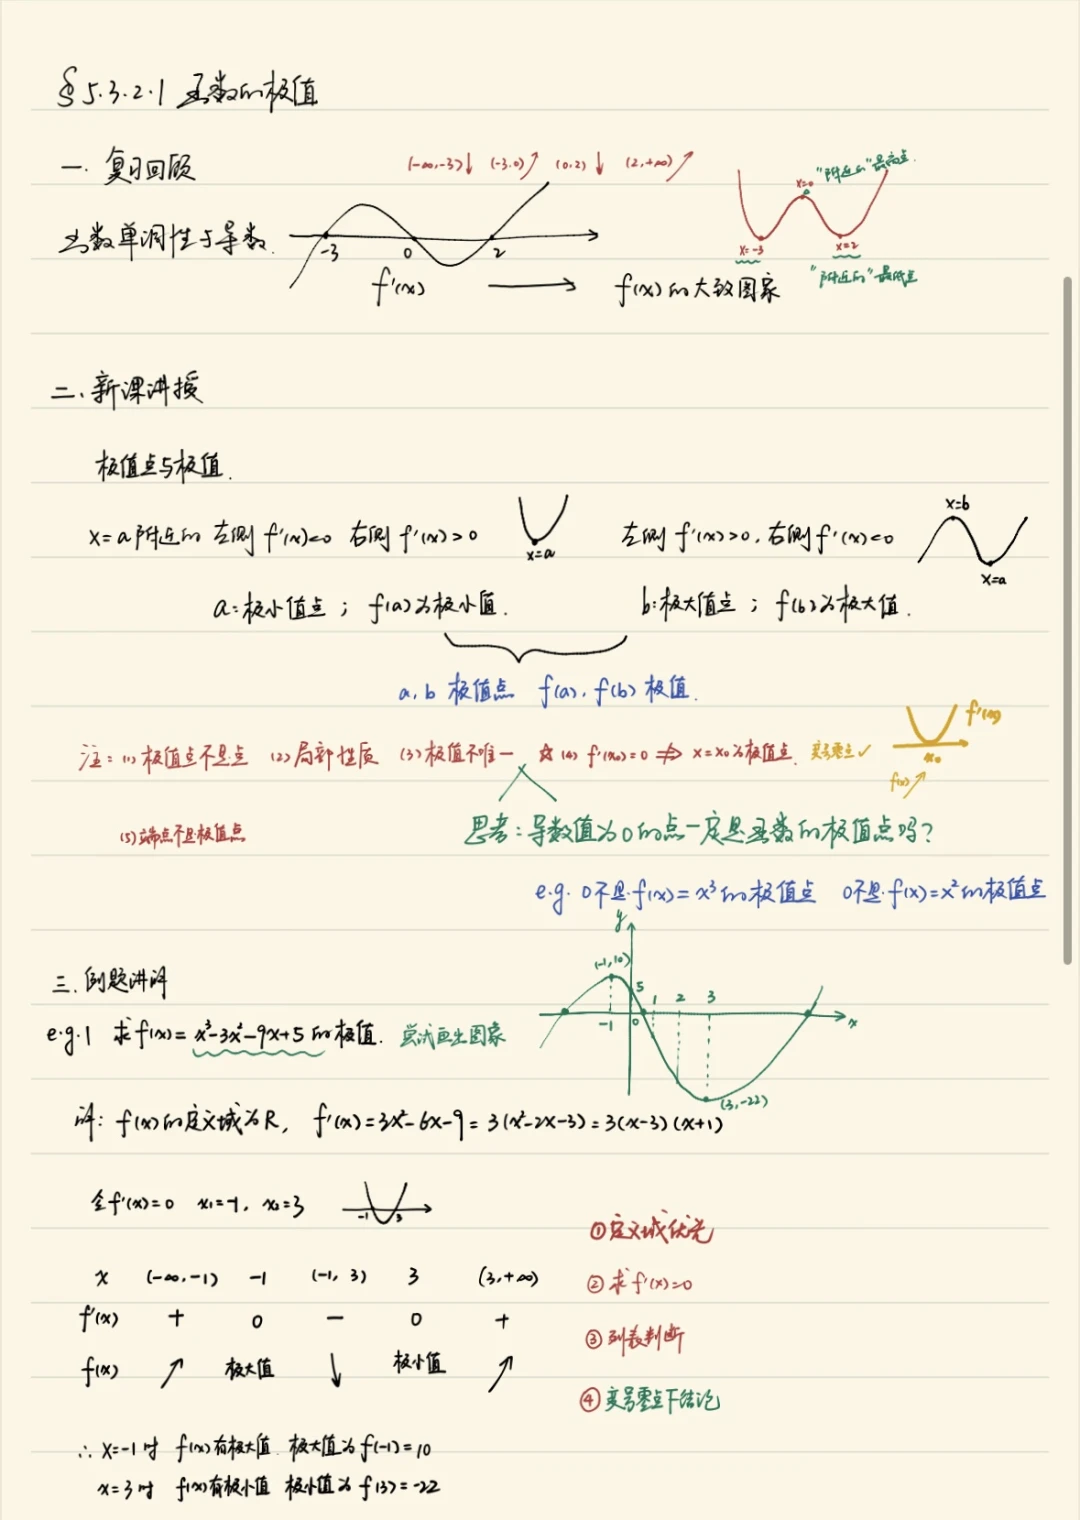 §5.3.2.1 函数的极值
一. 复习回顾
(-∞,-3)↓ (-3,0)↗ (0,2)↓ (2,+∞)↗
x=0 "附近的"最高点
函数单调性与导数.
-3 0 2
x=-3 x=2
"附近的"最低点
f'(x) → f(x)的大致图象
二、新课讲授
极值点与极值.
x=a附近的 左侧 f'(x)<0 右侧 f'(x)>0
x=a
左侧 f'(x)>0, 右侧 f'(x)<0
x=b
x=a
a:极小值点 ; f(a)为极小值.
b:极大值点 ; f(b)为极大值.
a, b 极值点 f(a), f(b) 极值.
注: (1) 极值点不是点 (2) 局部性质 (3) 极值不唯一 ☆(4) f'(x₀)=0 ⇏ x=x₀为极值点. 变号零点✓
f'(x)
x₀
f(x)↗
(5) 端点不是极值点
思考: 导数值为0的点一定是函数的极值点吗?
e.g. 0不是f(x)=x³的极值点 0不是f(x)=x²的极值点
三. 例题讲评
y
(-1,10)
5
1 2 3
-1 0 x
(3,-22)
e.g.1 求f(x)=x³-3x²-9x+5的极值. 尝试画出图象
解: f(x)的定义域为R, f'(x)=3x²-6x-9=3(x²-2x-3)=3(x-3)(x+1)
令f'(x)=0 x₁=-1, x₂=3
-1 3
x (-∞,-1) -1 (-1,3) 3 (3,+∞)
f'(x) + 0 - 0 +
f(x) ↗ 极大值 ↓ 极小值 ↗
①定义域优先
②求f'(x)=0
③列表判断
④变号零点下结论
∴ x=-1时 f(x)有极大值. 极大值为f(-1)=10
x=3时 f(x)有极小值 极小值为f(3)=-22